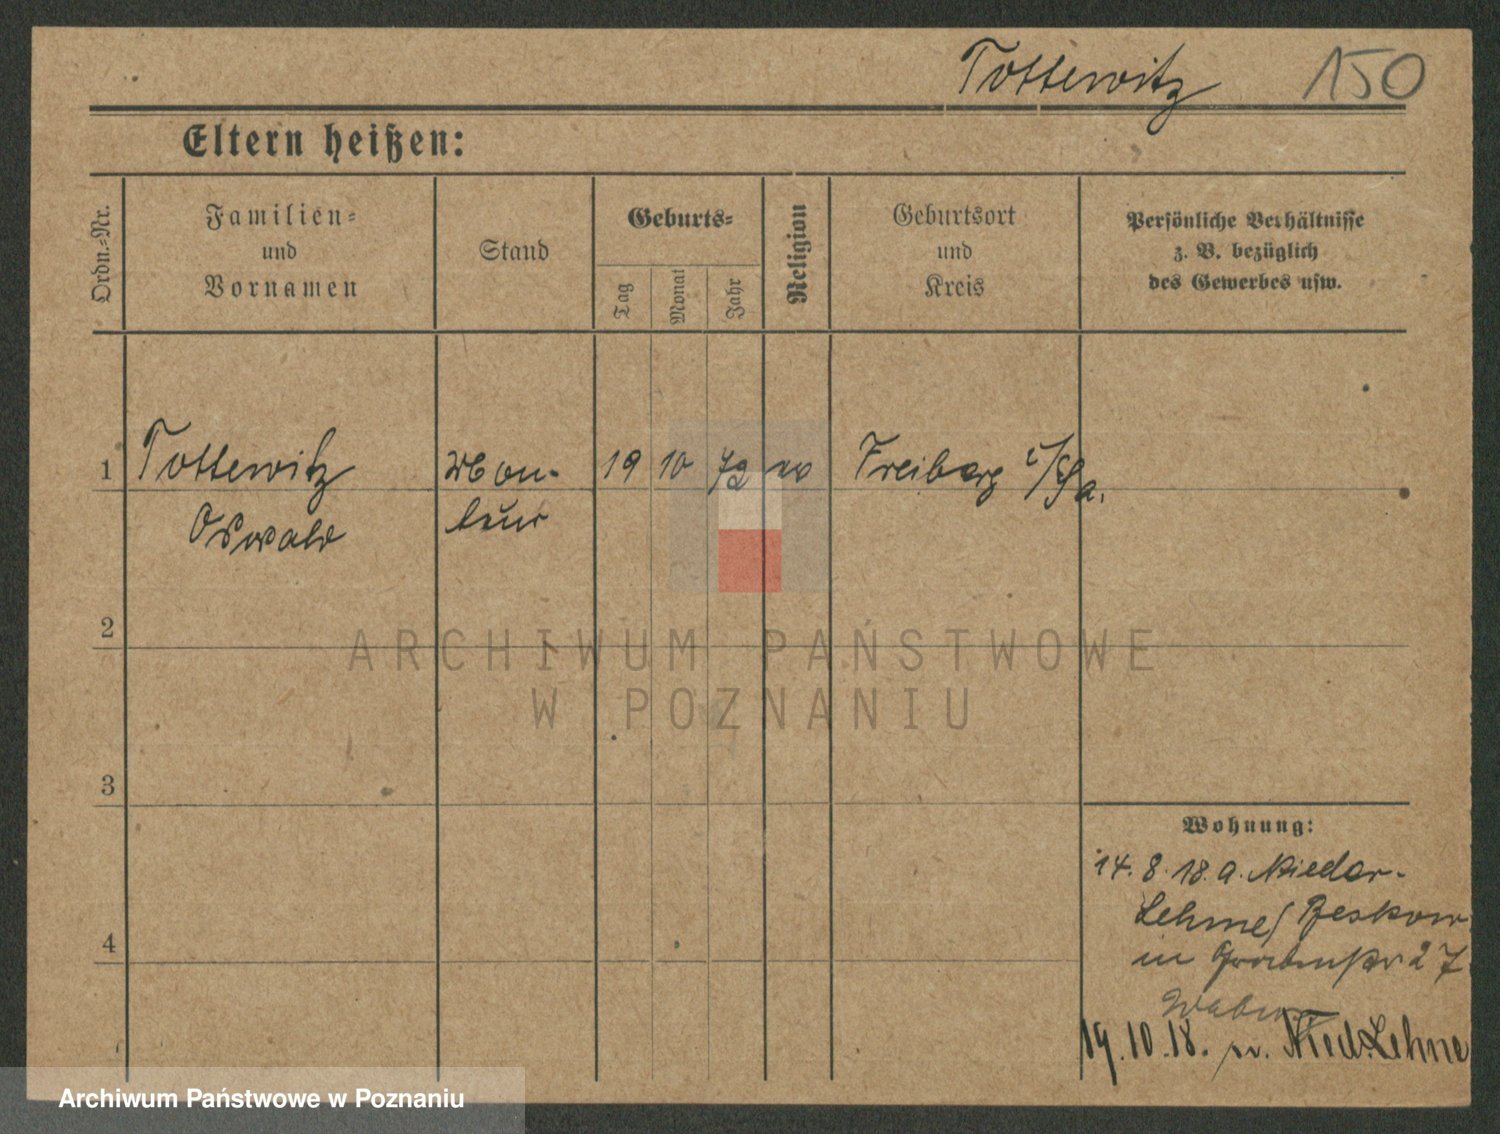 Tottewitz 150
Eltern heißen:
Ordn.-Nr.
Familien-
und
Vornamen
Stand
Geburts-
Tag
Monat
Jahr
Religion
Geburtsort
und
Kreis
Persönliche Verhältnisse
z. B. bezüglich
des Gewerbes usw.
1 Tottewitz Mon- 19 10 72 ev Freiberg i/Sa.
Oswald teur
2
3
4
Wohnung:
14. 8. 18. a. Nieder-
Lehme/ Beskow
in 27
19. 10. 18. n. Nied. Lehme
ARCHIWUM PAŃSTWOWE
W POZNANIU
Archiwum Państwowe w Poznaniu